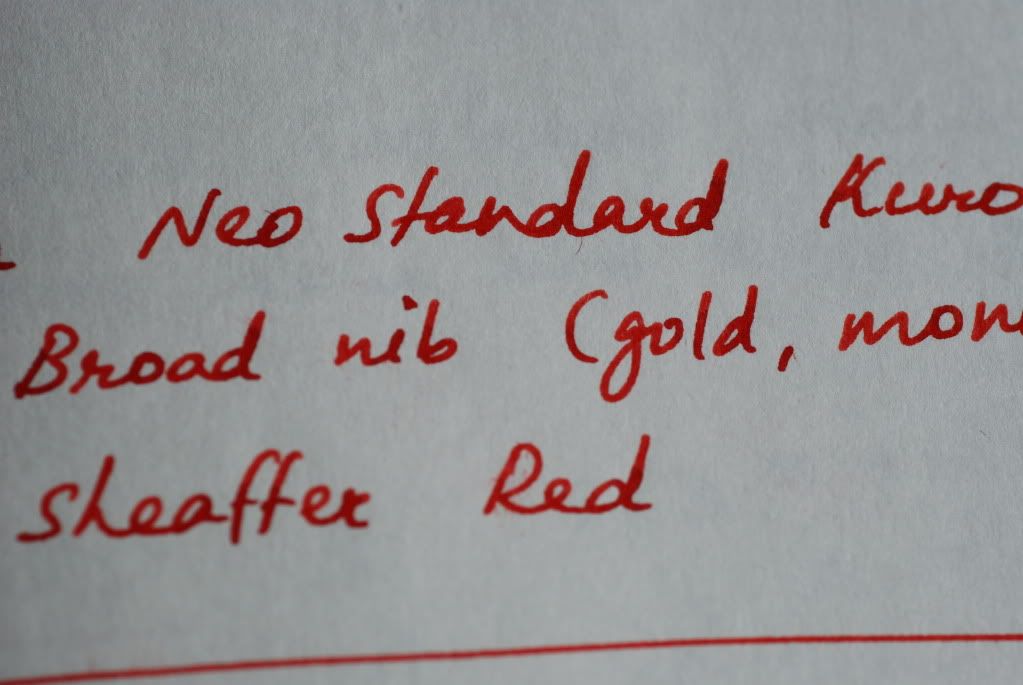 Neo Standard Kuro
Broad nib (gold, mon
Sheaffer Red